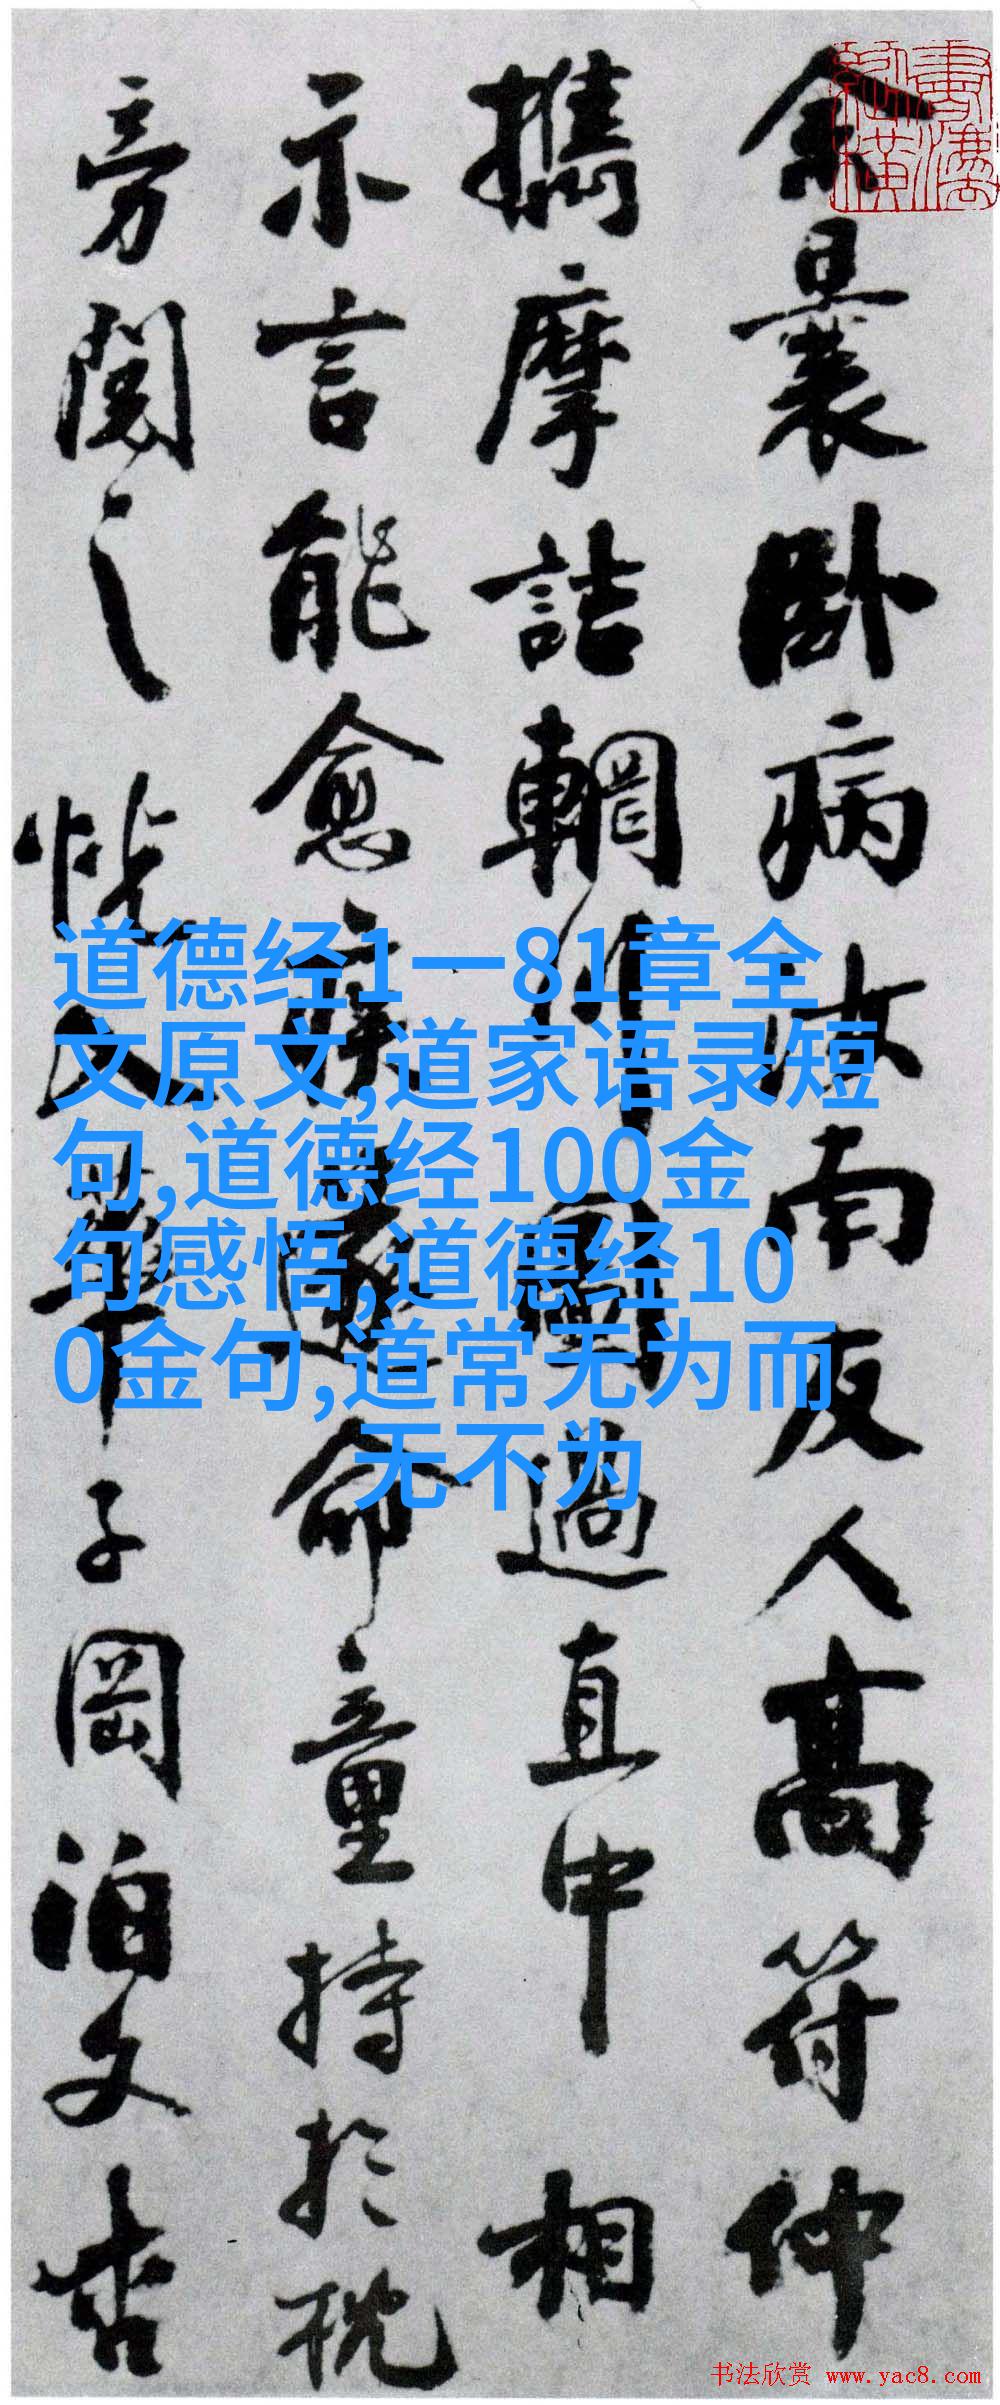 余曩卧病汝南友人高符仲
攜摩詰輞川圖過直中相
示言能愈疾遂命童持於枕
旁閱之恍入華子岡泊文杏
道德经1一81章全
文原文,道家语录短
句,道德经100金
句感悟,道德经10
0金句,道常无为而
无不为
书法欣赏 www.yac8.com